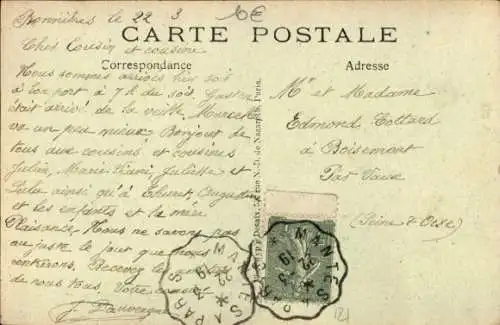 Bonnières le 22 3
6€
CARTE POSTALE
Correspondance
Adresse
Cher Cousin et cousine
Nous sommes arrivés hier soir
à bon port à 7 h du soir, Gaston
était arrivé de la veille Marcel
va un peu mieux Bonjour de
tous aux cousins et cousines
Julia, Marie, Juliette et
Lulu ainsi qu'à
et les enfants et la mère
Plaisance, Nous ne savons pas
au juste le jour que nous
rentrerons. Recevez
de nous tous. Votre cousin
J.
Mr et Madame
Edmond Cottard
à Boisemont
Par Vaux
(Seine & Oise)
MANTES A PARIS
22 3 19
MANTES A PARIS
22 3 19
121